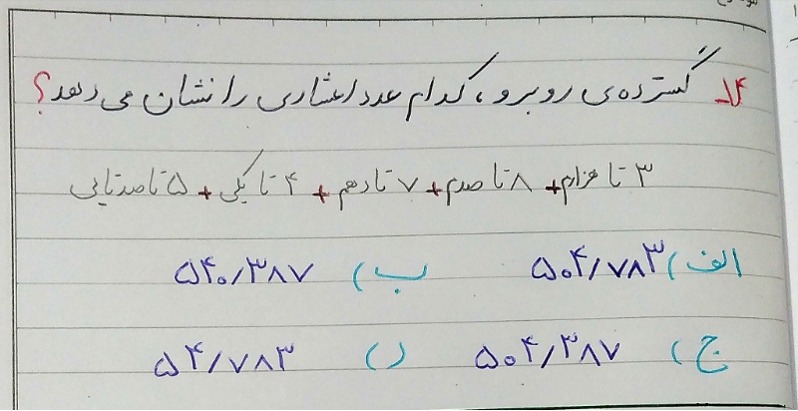 ۱۴_ گسترده‌ی روبرو، کدام عدد اعشاری را نشان می دهد؟
۳ تا هزارم + ۸ تا صدم + ۷ تا دهم + ۴ تا یکی + ۵ تا صدتایی
الف) ۵۰۴/۷۸۳ ب) ۵۴۰/۳۸۷
ج) ۵۰۴/۳۸۷ د) ۵۴/۷۸۳